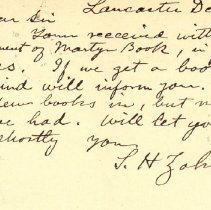 Lancaster De
ear Sir
Yours received with
ment of Martyr Book, in
es. If we get a boo
ind will inform you.
books in, but n
e had. Will let yo
shortly you
S. H Zah